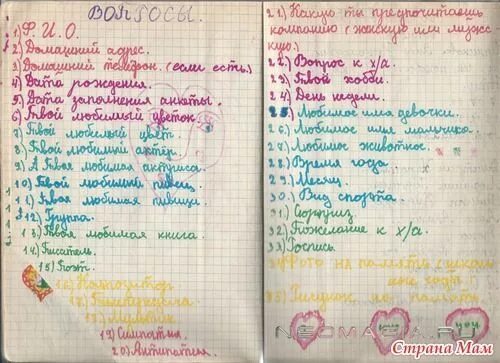 ВОПРОСЫ.
1) Ф. И. О.
2) Домашний адрес.
3) Домашний телефон. (если есть.)
4) Дата рождения.
5) Дата заполнения анкеты.
6) Твой любимый цветок.
7) Твой любимый цвет.
8) Твой любимый актёр.
9) А Твоя любимая актриса.
10) Твой любимый певец.
11) Твоя любимая певица.
12) Группа.
13) Твоя любимая книга
14) Писатель.
15) Поэт.
16) Композитор
17)
18)
19) Симпатия.
20) Антипатия.
21) Какую ты предпочитаешь
компанию (женскую или мужс
кую.)
22) Вопрос к х/а.
23) Твой хобби.
24) День недели.
25) Любимое имя девочки.
26) Любимое имя мальчика.
27) Любимое животное.
28) Время года.
29) Месяц.
30) Вид спорта.
31) Сюрприз
32) Пожелание к х/а.
33) Роспись.
34) Фото на память
35) Рисунок на память.
you
NEOMAGIA.RU
Страна Мам